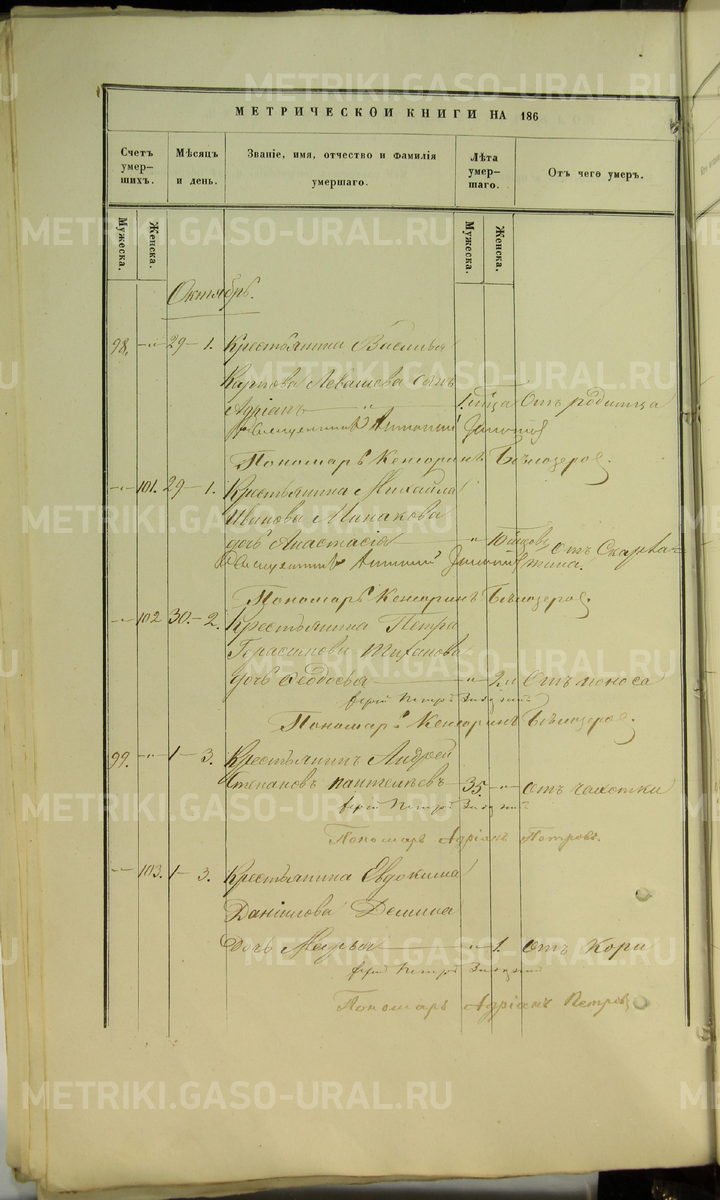 МЕТРИЧЕСКОЙ КНИГИ НА 186
Счетъ умер-шихъ.
Мѣсяцъ и день.
Званіе, имя, отчество и фамилія умершаго.
Лѣта умер-шаго.
Отъ чего умеръ.
Мужеска.
Женска.
Мужеска.
Женска.
Октябрь.
98. " 29 - 1. Крестьянина Василья
Карпова Левашова сынъ
Адріанъ " Отъ родимца
Священникъ Антоній
Пономарь Кенсоринъ Бѣлозеровъ.
" 101. 29 - 1. Крестьянина Михайла
Иванова Минакова
дочь Анастасія " Отъ Скарла-
тина.
Священникъ Антоній
Пономарь Кенсоринъ Бѣлозеровъ.
" 102 30. - 2. Крестьянина Петра
Герасимова
дочь Ѳеодосья " Отъ поноса
Іерей Петръ
Пономарь Кенсоринъ Бѣлозеровъ.
99. " 1 - 3. Крестьянинъ Андрей
Степановъ Пантелѣевъ 35. " Отъ чахотки
Іерей Петръ
Пономарь Адріанъ Петровъ.
" 103. 1 - 3. Крестьянина Евдокима
Даніилова Демина
Дочь Марья " 1. Отъ Кори
Іерей Петръ
Пономарь Адріанъ Петровъ
METRIKI.GASO-URAL.RU